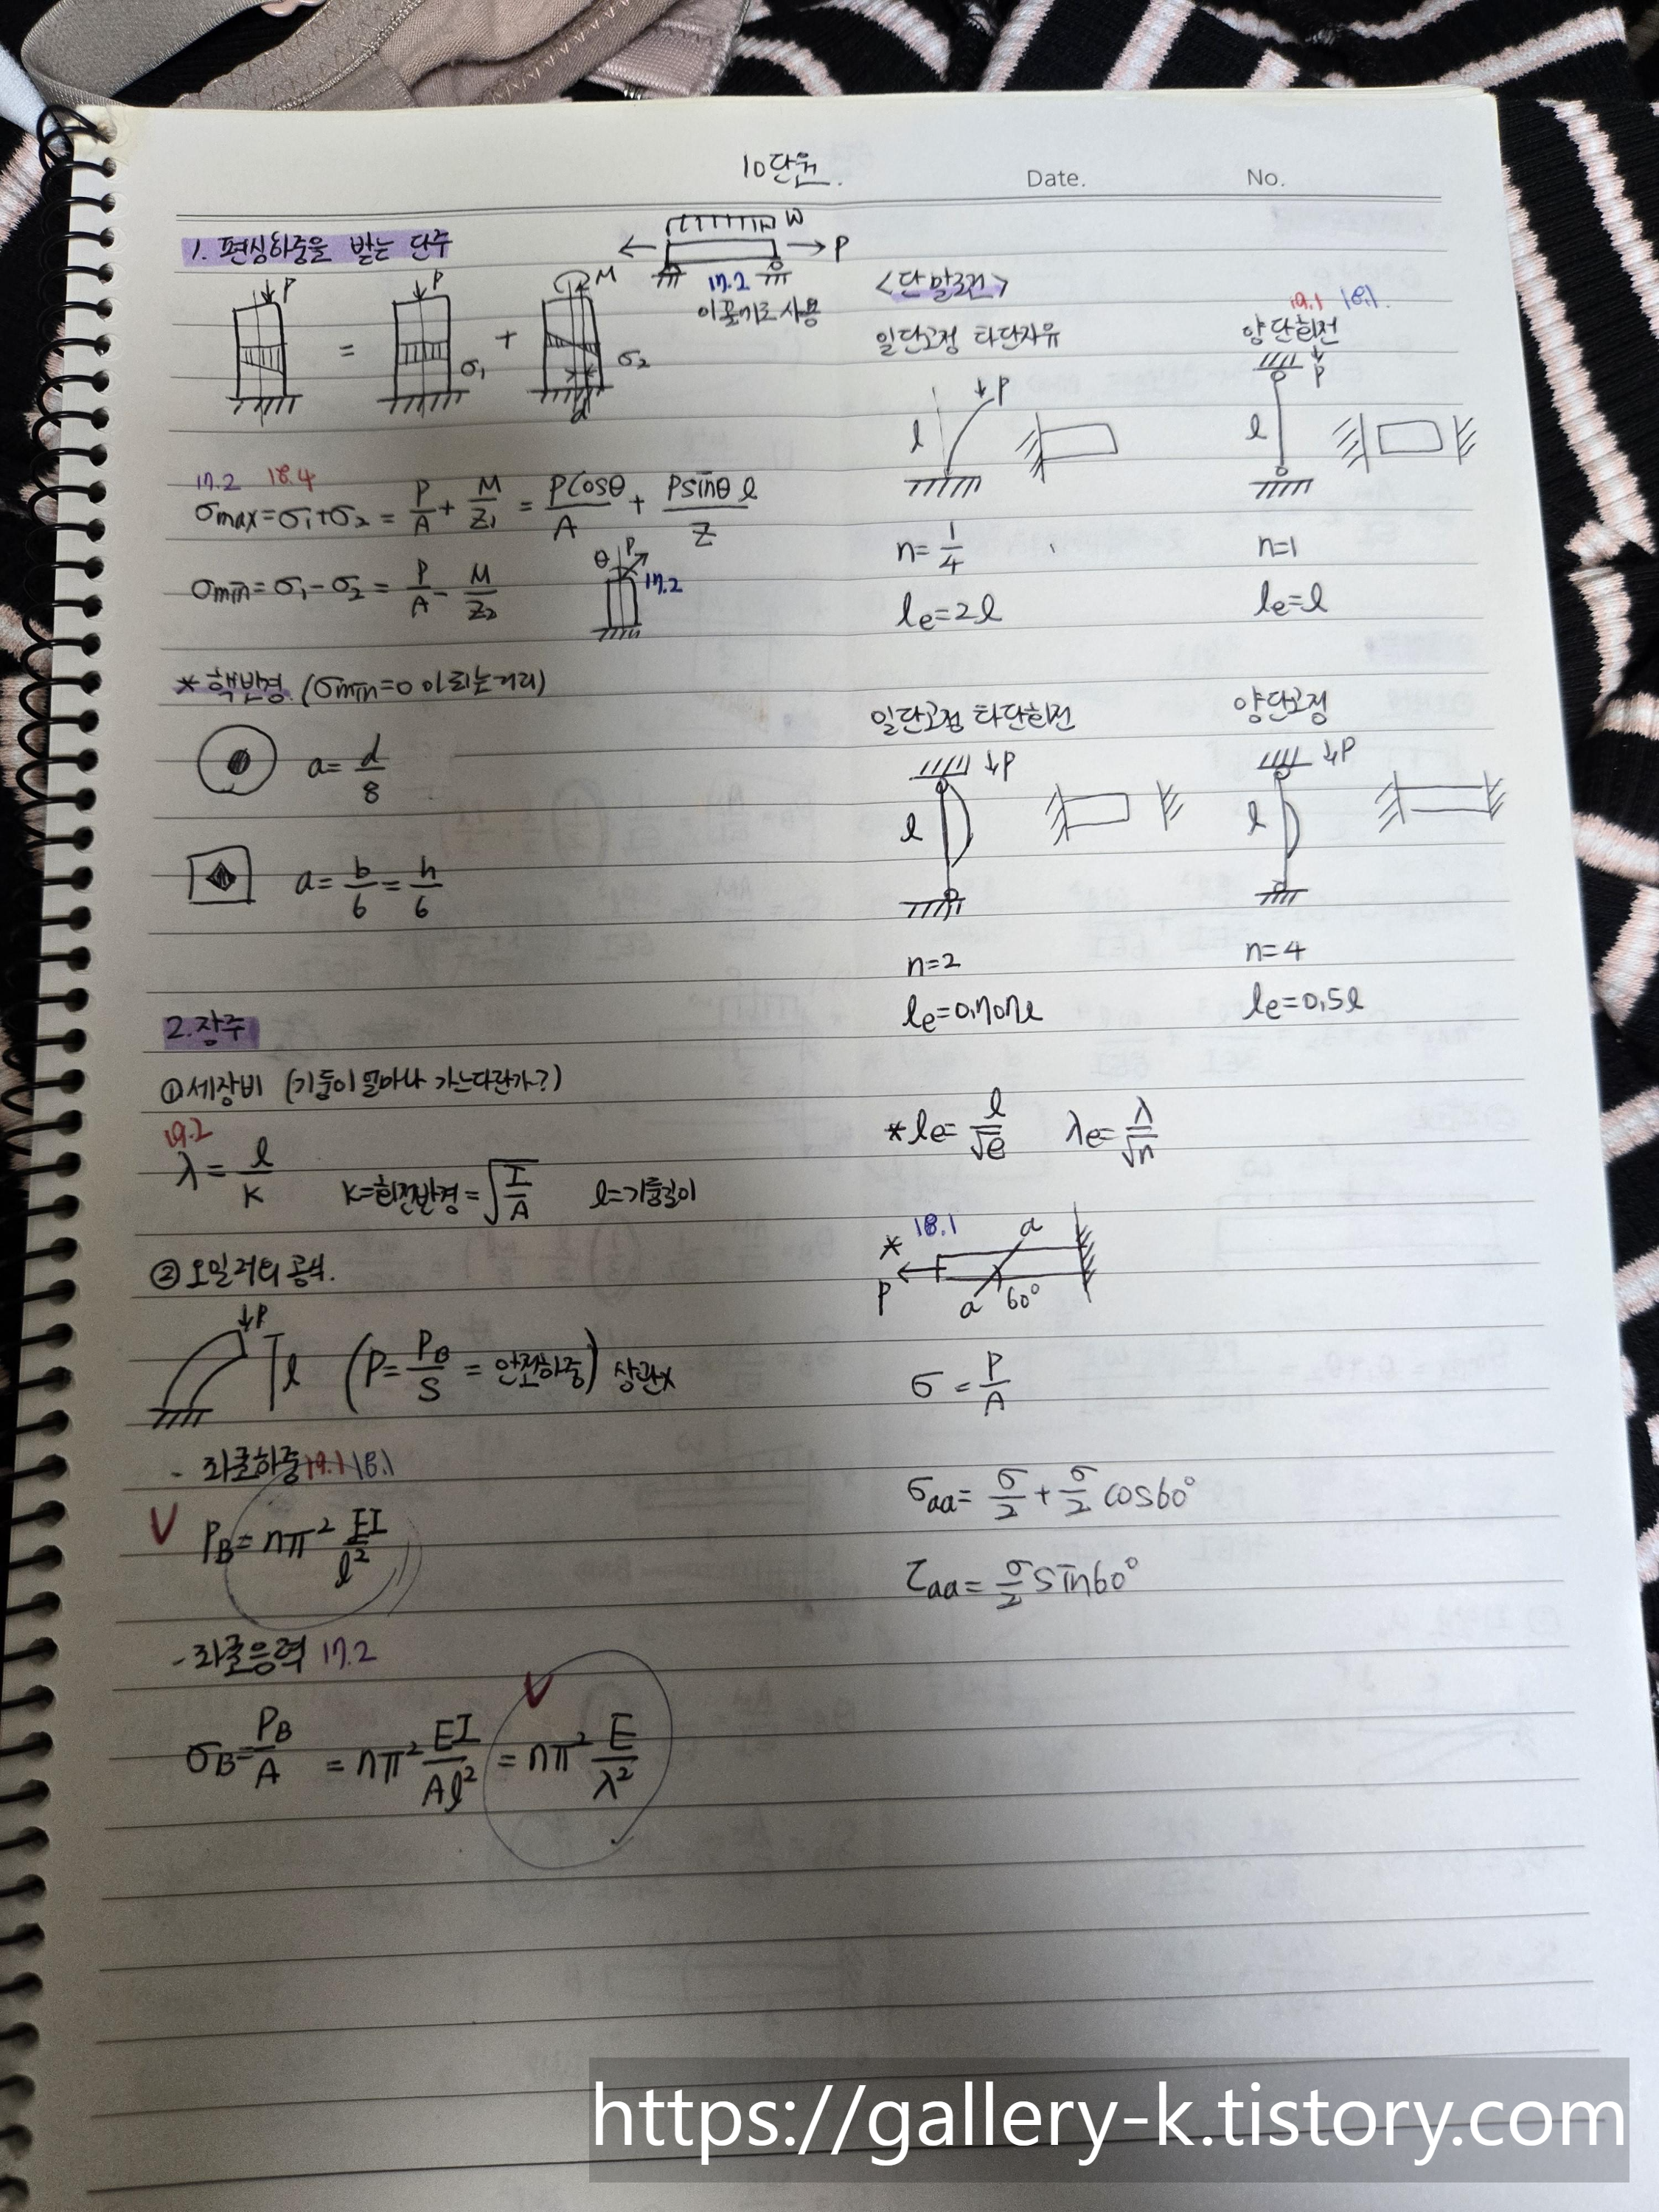 10단원.
Date.
No.
1. 편심하중을 받는 단주
P = P σ₁ + M σ₂ d
W
P
17.2
이꼴기로 사용
17.2 18.4
σmax=σ₁+σ₂ = P/A + M/Z₁ = Pcosθ/A + Psinθ l/Z
σmin=σ₁-σ₂ = P/A - M/Z₂
θ P 17.2
* 핵반경 (σmin=0 이 되는 거리)
a= d/8
a= b/6 = h/6
2. 장주
① 세장비 (기둥이 얼마나 가느다란가?)
19.2
λ= l/K K=회전반경=√(I/A) l=기둥길이
② 오일러의 공식.
P l (P= P_B/S = 안전하중) 상관x
- 좌굴하중 19.1 18.1
V P_B= nπ² EI/l²
- 좌굴응력 17.2
V
σ_B= P_B/A = nπ² EI/Al² = nπ² E/λ²
<단말조건>
일단고정 타단자유
P
l
n= 1/4
le=2l
19.1 18.1.
양단회전
P
l
n=1
le=l
일단고정 타단회전
P
l
n=2
le=0.707l
양단고정
P
l
n=4
le=0.5l
* le= l/√e λe= λ/√n
* 18.1
P a a 60°
σ = P/A
σaa= σ/2 + σ/2 cos60°
τaa= σ/2 sin60°
https://gallery-k.tistory.com